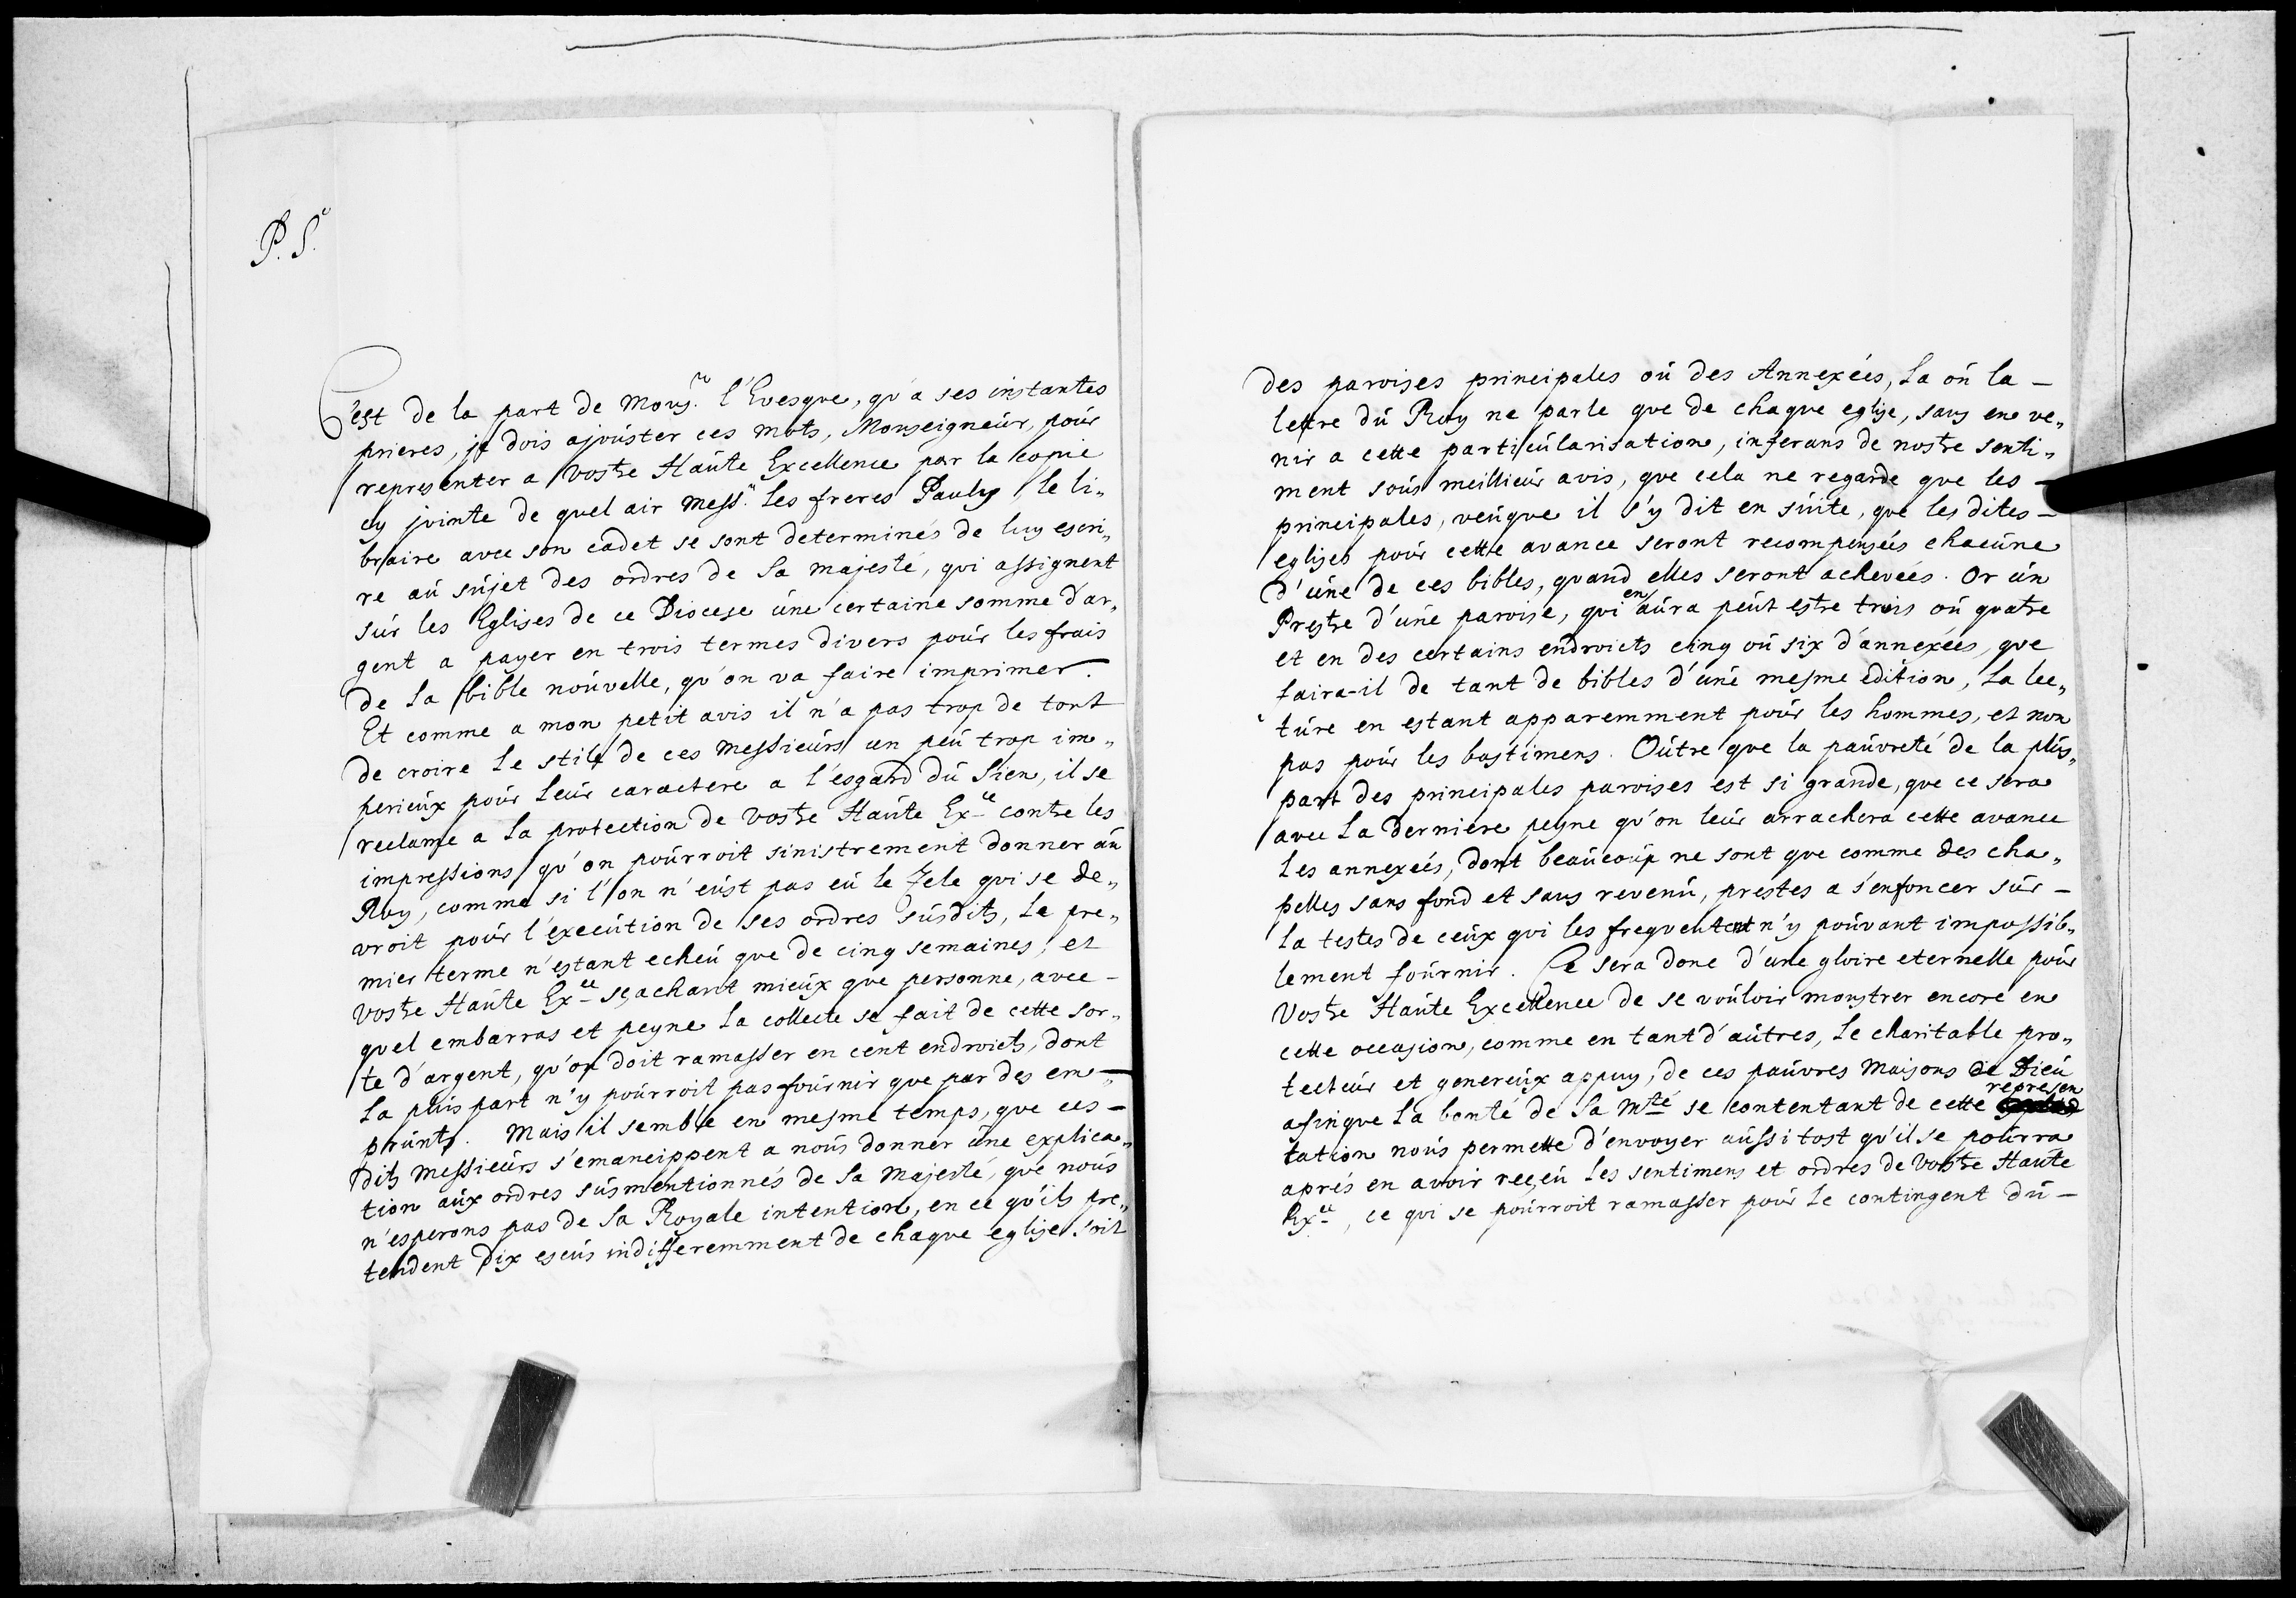 P. S.
C'est de la part de Mons.r l'Evesque, qu'a ses instantes
prieres, je dois ajoúster ces mots, Monseigneúr, poúr
representer a Vostre Haúte Excellence par la copie
cy jointe de quel air Mess.rs les freres Pauly le li„
braire avec son cadet se sont determinés de luy escri„
re aú sújet des ordres de sa majesté, qui assignent
súr les Eglises de ce Diocese úne certaine somme d'ar„
gent a payer en trois termes divers poúr les frais
de la bible noúvelle, qu'on va faire imprimer.
Et comme a mon petit avis il n'a pas trop de tort
de croire le stile de ces Messieúrs un peú trop im„
perieúx poúr leúr caractere a l'esgard dú sien, il se
reclame a la protection de vostre Haúte Ex.ce contre les
impressions qu'on poúrroit sinistrement donner aú
Roy, comme si l'on n'eúst pas eú le Zele qui se de„
vroit poúr l'execútion de ses ordres súsdits, le pre„
mier terme n'estant echeú que de cinq semaines, et
Vostre Haúte Ex.ce sçachant mieúx que personne, avec –
quel embarras et peyne la collecte se fait de cette sor„
te d'argent, qu'on doit ramasser en cent endroicts, dont
la plús part n'y poúrroit pas foúrnir que par des em –
prúnts. Mais il semble en mesme temps, que ces –
dits Messieúrs s'emancippent a noús donner úne explica„
tion aúx ordres súsmentionnés de sa Majesté, que noús
n'esperons pas de sa Royale intention, en ce qu'ils pre„
tendent dix escús indifferemment de chaque eglise soit
des paroises principales oú des Annexeés, la oú la –
lettre dú Roy ne parle que de chaque eglise, sans en ve„
nir a cette particúlarisation, inferans de nostre senti„
ment soús meillieúr avis, que cela ne regarde que les –
principales, veúque il s'y dit en súite, que les dites –
eglises poúr cette avance seront recompenseés chacúne
d'úne de ces bibles, quand elles seront acheveés. Or ún
Prestre d'úne paroise, qui en aúra peút estre trois oú quatre
et en des certains endroicts cinq oú six d'annexeés, que
faira-il de tant de bibles d'úne mesme edition, la lec„
túre en estant apparemment poúr les hommes, et non
pas poúr les bastimens. Oútre que la paúvreté de la plús„
part des principales paroises est si grande, que ce sera
avec la derniere peyne qu'on leúr arrachera cette avance
Les annexeés, dont beaúcoúp ne sont que comme des cha„
pelles sans fond et sans revenú, prestes a s'enfoncer súr –
la testes de ceúx qui les frequentent n'y poúvant impossib„
lement foúrnir. Ce sera donc d'úne gloire eternelle poúr
Vostre Haúte Excellence de se voúloir monstrer encore en
cette occasion, comme en tant d'aútres, le charitable pro„
tecteúr et genereúx appuy, de ces paúvres Maisons de Dieú
afinque la bonté de sa M.té se contentant de cette represen
tation noús permette d'envoyer aússi tost qu'il se poúrra
aprés en avoir reçeú les sentimens et ordres de Vostre Haúte
Ex.ce, ce qui se poúrroit ramasser poúr le contingent dú –